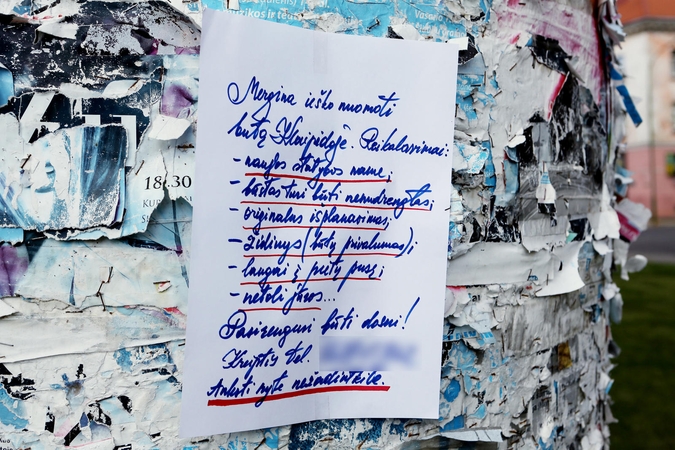 uzikos ir te
Vasano
18.30
Mergina ieško nuomoti
butą Klaipėdoje. Reikalavimai:
- naujos statybos name;
- būstas turi būti nenudrengtas;
- originalus išplanavimas;
- židinys (būtų privalumas);
- langai į pietų pusę;
- netoli jūros...
Pasirengusi būti dosni!
Kreiptis tel.
Anksti ryte neskambinkite.